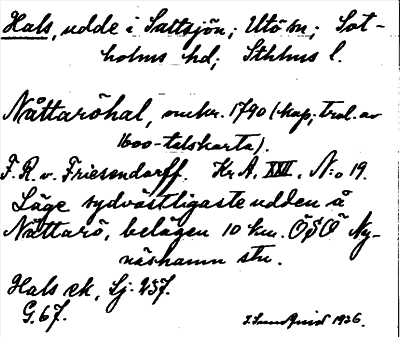 Hals, udde i Saltsjön; Utö sn; Sot-
holms hd; Sthlms l.
Nåttaröhal, omkr. 1790 (kop. trol. av
1600-talskarta).
F. R. v. Friesendorff. Kr A. XVI. N:o 19.
Läge sydvästligaste udden å
Nåttarö, belägen 10 km. ÖSÖ Ny-
näshamn stn.
Hals ek, Sj: 257.
G. 67.
1926.